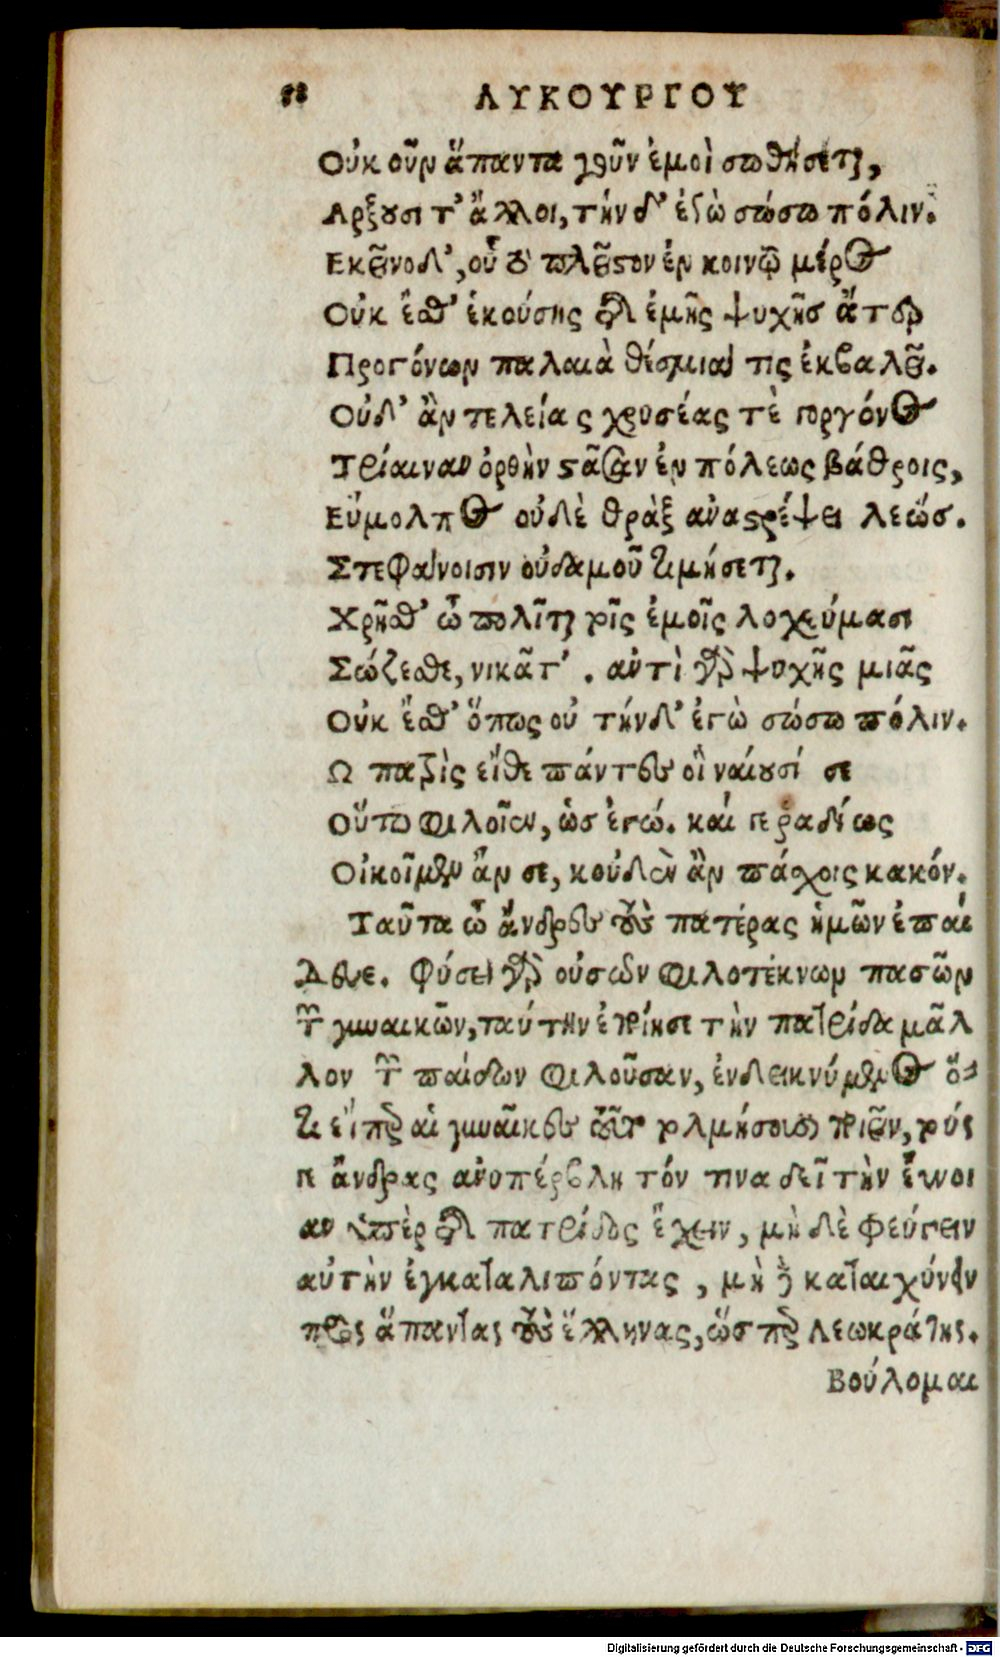 58 ΛΥΚΟΥΡΓΟΥ
Οὐκ οῦν ἅπαντα γοῦν ἐμοὶ σωθήσεται,
Αρξουσι τ' ἄλλοι, τήνδ' ἐγὼ σώσω πόλιν.
Εκεῖνο δ', οὗ τὸ πλεῖστον ἐν κοινῷ μέρος
Οὐκ ἔσθ' ἑκούσης τῆς ἐμῆς ψυχῆσ ἄτερ
Προγόνων παλαιὰ θέσμια τις ἐκβαλεῖ.
Οὐδ' ἂν τελείας χρυσέας τὲ γοργόνος
Τρίαιναν ὀρθὴν στᾶσαν ἐν πόλεως βάθροις,
Εὔμολπος οὐδὲ θρὰξ αναστρέψει λεώσ.
Στεφάνοισιν οὐδαμοῦ τιμήσεται.
Χρῆσθ' ὦ πολῖται τοῖς ἐμοῖς λοχεύμασι
Σώζεσθε, νικᾶτ'. αντὶ γὰρ ψυχῆς μιᾶς
Οὐκ ἔσθ' ὅπως οὐ τήνδ' ἐγὼ σώσω πόλιν.
Ω πατρὶς εἴθε πάντες οἳ ναίουσί σε
Οὕτω φιλοῖεν, ὡσ ἐγώ. καί γε ῥαδίως
Οἰκοῖμεν ἄν σε, κοὐδεν ἂν πάσχοις κακόν.
Ταῦτα ὦ ἄνδρες τοὺς πατέρας ἡμῶν ἐπαί
δευε. Φύσει γὰρ οὐσῶν φιλοτέκνων πασῶν
τῶν γυναικῶν, ταύτην ἐποίησε τὴν πατρίδα μᾶλ
λον τῶν παίδων φιλοῦσαν, ἐνδεικνύμενος ὅ-
τι εἴπερ αἱ γυναῖκες τοῦτο τολμήσουσι ποιεῖν, τούς
γε ἄνδρας ανυπέρβλητόν τινα δεῖ τὴν εὔνοι
αν ὑπὲρ τῆς πατρίδος ἔχειν, μὴ δὲ φεύγειν
αὐτὴν ἐγκαταλιπόντας, μὴ δὲ καταισχύνειν
πρὸς ἅπαντας τοὺς ἕλληνας, ὥσπερ Λεωκράτης.
Βούλομαι
Digitalisierung gefördert durch die Deutsche Forschungsgemeinschaft - DFG